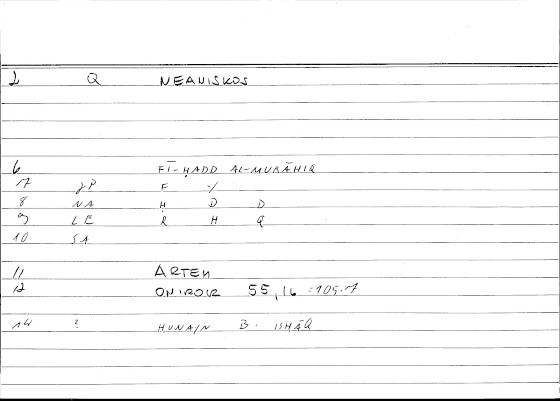 2 Q NEANISKOS
6 FĪ-ḤADD AL-MURĀHIQ
7 JP F Y
8 NA Ḥ D D
9 LE R H Q
10 SA
11 ARTEM
12 ONIROCR 55,16 = 109.7
14 ? HUNAIN B. ISḤĀQ